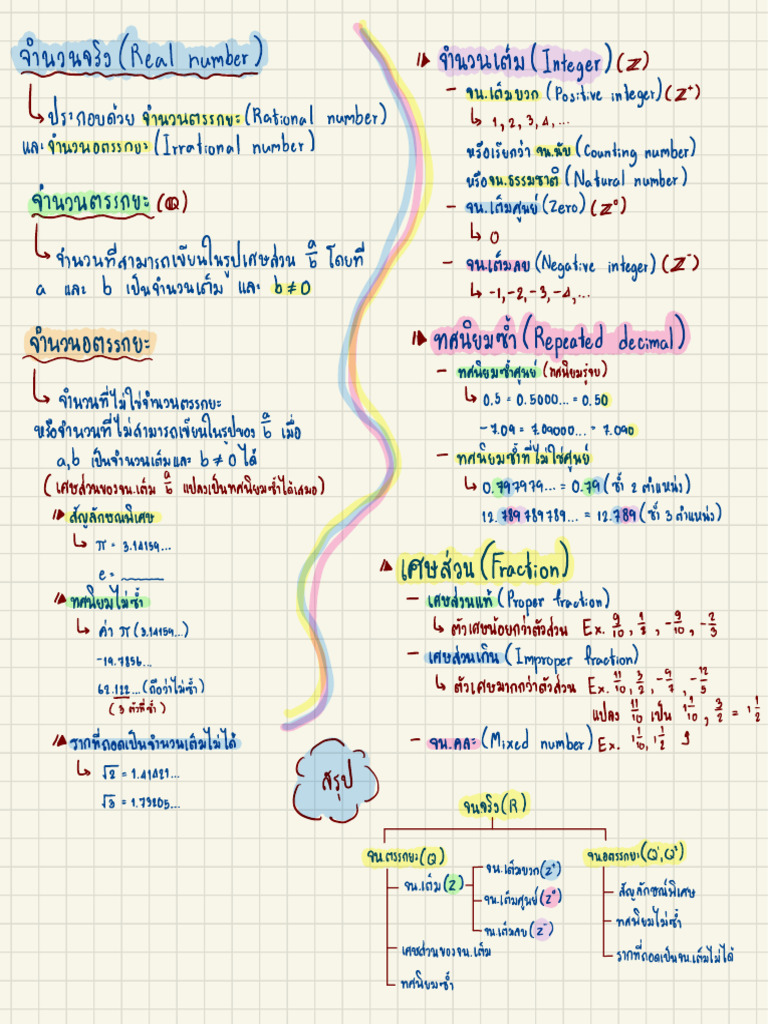 จำนวนจริง (Real number)
ประกอบด้วย จำนวนตรรกยะ (Rational number)
และ จำนวนอตรรกยะ (Irrational number)
จำนวนตรรกยะ (Q)
จำนวนที่สามารถเขียนในรูปเศษส่วน a/b โดยที่
a และ b เป็นจำนวนเต็ม และ b ≠ 0
จำนวนอตรรกยะ
จำนวนที่ไม่ใช่จำนวนตรรกยะ
หรือจำนวนที่ไม่สามารถเขียนในรูปของ a/b เมื่อ
a,b เป็นจำนวนเต็มและ b ≠ 0 ได้
(เศษส่วนของจน.เต็ม a/b แปลงเป็นทศนิยมซ้ำได้เสมอ)
สัญลักษณ์พิเศษ
π = 3.14159...
e = ______
ทศนิยมไม่ซ้ำ
ค่า π (3.14159...)
-19.7856...
62.122... (ถือว่าไม่ซ้ำ)
(3 ตัวที่ซ้ำ)
รากที่ถอดเป็นจำนวนเต็มไม่ได้
√2 = 1.41421...
√3 = 1.73205...
จำนวนเต็ม (Integer) (Z)
- จน.เต็มบวก (Positive integer) (Z⁺)
1, 2, 3, 4, ...
หรือเรียกว่า จน.นับ (Counting number)
หรือ จน.ธรรมชาติ (Natural number)
- จน.เต็มศูนย์ (Zero) (Z⁰)
0
- จน.เต็มลบ (Negative integer) (Z⁻)
-1, -2, -3, -4, ...
ทศนิยมซ้ำ (Repeated decimal)
- ทศนิยมซ้ำศูนย์ (ทศนิยมรู้จบ)
0.5 = 0.5000... = 0.50
-7.09 = 7.09000... = 7.090
- ทศนิยมซ้ำที่ไม่ใช่ศูนย์
0.797979... = 0.79 (ซ้ำ 2 ตำแหน่ง)
12.789789789... = 12.789 (ซ้ำ 3 ตำแหน่ง)
เศษส่วน (Fraction)
- เศษส่วนแท้ (Proper fraction)
ตัวเศษน้อยกว่าตัวส่วน Ex. 9/10, 1/2, -9/10, -2/3
- เศษส่วนเกิน (Improper fraction)
ตัวเศษมากกว่าตัวส่วน Ex. 11/10, 3/2, -9/7, -12/5
แปลง 11/10 เป็น 1 1/10, 3/2 = 1 1/2
- จน.คละ (Mixed number) Ex. 1 1/10, 1 1/2
สรุป
จน.จริง (R)
จน.ตรรกยะ (Q)
จน.อตรรกยะ (Q', Qᶜ)
จน.เต็ม (Z)
จน.เต็มบวก (Z⁺)
จน.เต็มศูนย์ (Z⁰)
จน.เต็มลบ (Z⁻)
เศษส่วนของ จน.เต็ม
ทศนิยมซ้ำ
สัญลักษณ์พิเศษ
ทศนิยมไม่ซ้ำ
รากที่ถอดเป็น จน.เต็มไม่ได้